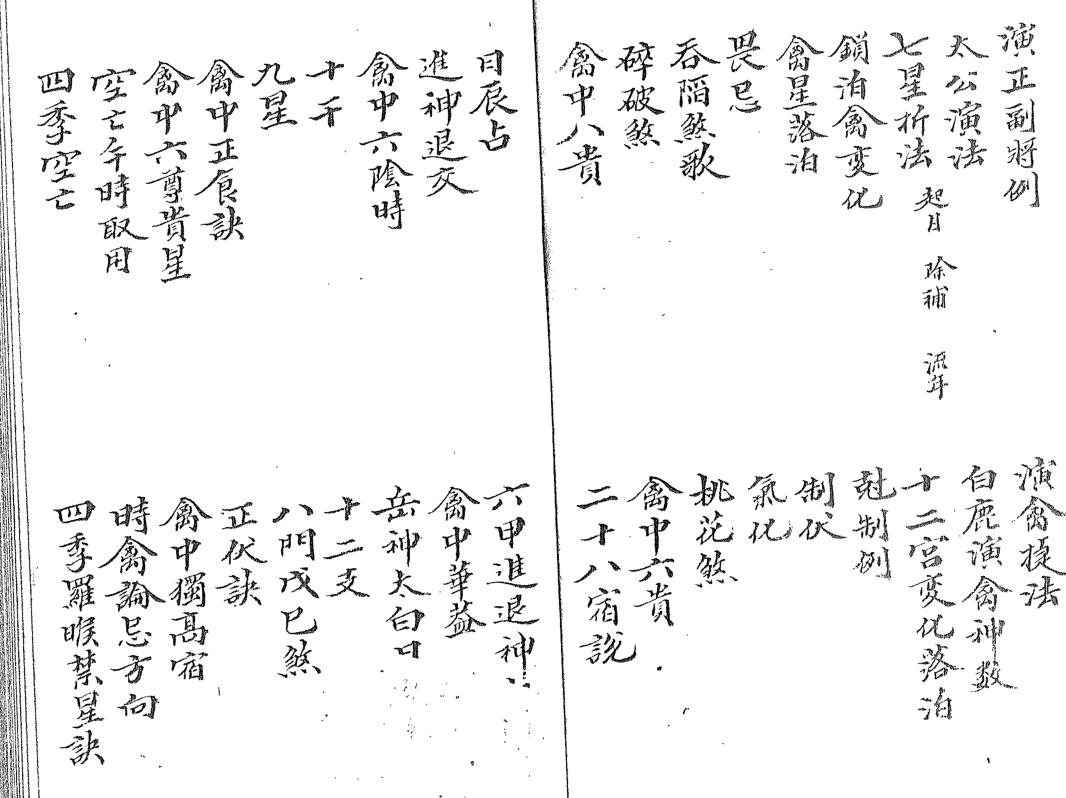 演正副將例
演禽捷法
太公演法
白鹿演禽神数
七星折法 起日 除補 流年
十二宮变化落泊
鎖泊禽变化
尅制例
禽星落泊
制伏
畏忌
氣化
吞陷煞歌
桃花煞
碎破煞
禽中六貴
禽中八貴
二十八宿説
日辰占
六甲進退神
進神退交
禽中華蓋
禽中六陰時
岳神太白
十干
十二支
九星
八門戊己煞
禽中正食訣
正伏訣
禽中六尊貴星
禽中獨高宿
空亡午時取用
時禽論忌方向
四季空亡
四季羅睺禁星訣